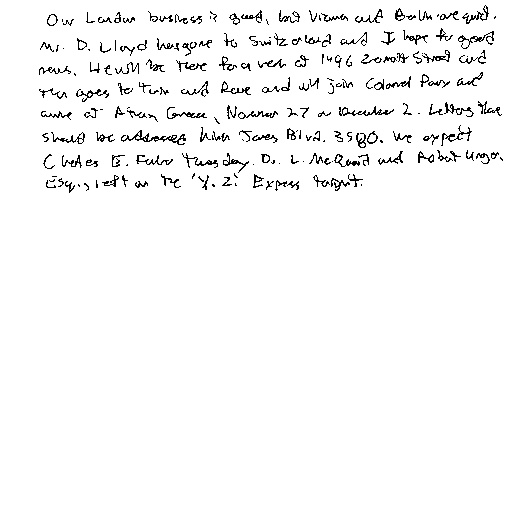 Our London business is good, but Vienna and Berlin are quiet.
Mr. D. Lloyd has gone to Switzerland and I hope for good
news. He will be there for a week at 1496 Zermott Street and
then goes to Turin and Rome and will join Colonel Parry and
arrive at Athens, Greece, November 27 or December 2. Letters there
should be addressed King James Blvd. 3580. We expect
Charles E. Fuller Tuesday. Dr. L. McQuaid and Robert Unger,
Esq., left on the 'Y. Z.' Express tonight.